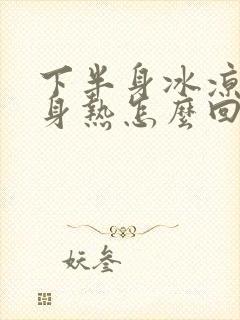 下半身冰凉
身热怎麼回
妖叁